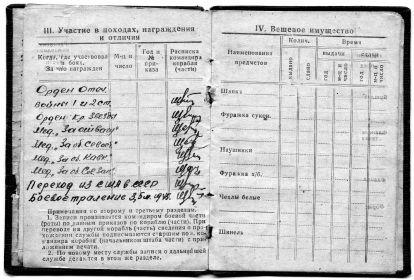 III. Участие в походах, награждения
и отличия
Когда, где участвовал
в боях.
За что награжден
М-ц и
число
Год и
№
при-
каза
Расписка
командира
корабля
(части)
Орден Отеч.
войны 1 и 2 ст.
Орден Кр. Звезда
Мед. „За
Мед. „За об.
мед. „За об. Кавк.”
Мед. „За об.
Переход из США в СССР
1945.
Примечания по второму и третьему разделам.
1. Записи производятся командиром боевой части
(роты) по данным приказов по кораблю (части). При
переводе на другой корабль (часть) сведения о про-
хождении службы подписываются старшим пом. ко-
мандира корабля (начальником штаба части) с при-
ложением печати.
2. По новому месту службы записи о дальнейшей
службе делается в этом же разделе.
IV. Вещевое имущество
Наименования
предметов
Колич.
Время
выдано
сдано
выдачи
сдачи
год
м-ц и
число
год
м-ц и
число
Шапка
Фуражка сукон.
Наушники
Фуражка х/б.
Чехлы белые
Шинель